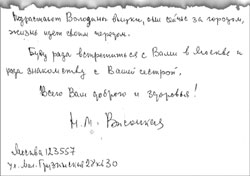 Подрастают Володины внуки, они сейчас за городом,
жизнь идет своим чередом.
Буду рада встретиться с Вами в Москве и
рада знакомству с Вашей сестрой.
Всего Вам доброго и здоровья!
Н. М. Высоцкая
Москва 123557
ул. Мал. Грузинская 28 кв 30